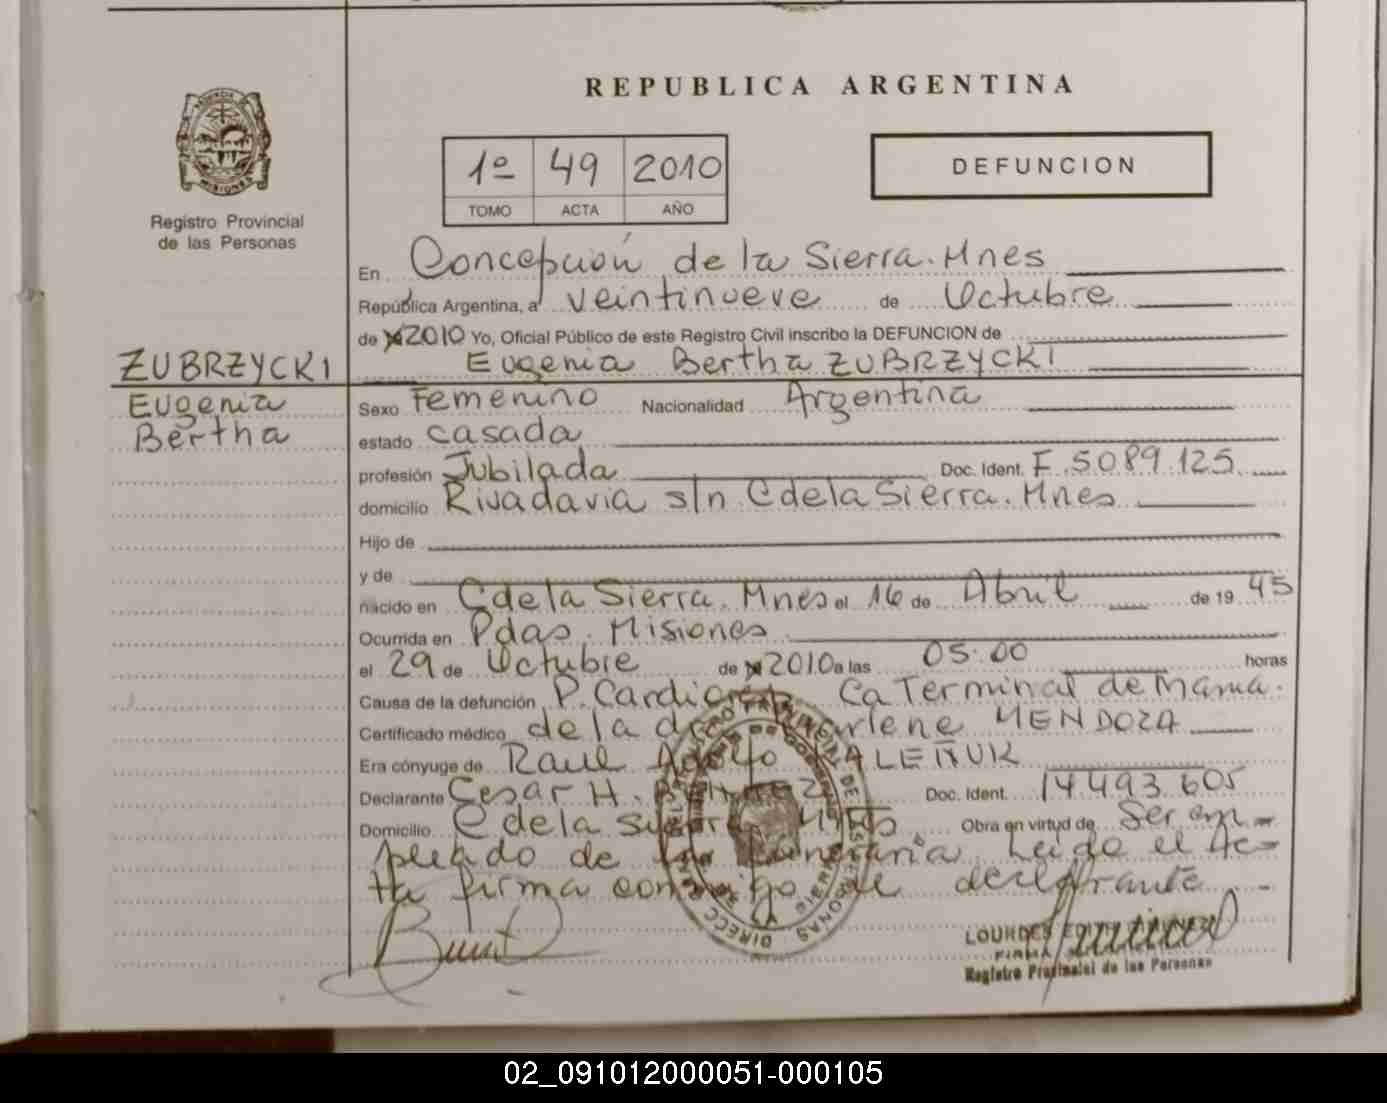 REPUBLICA ARGENTINA
PROVINCIA DE
MISIONES
Registro Provincial
de las Personas
1º 49 2010
TOMO ACTA AÑO
DEFUNCION
En Concepción de la Sierra. Mnes
República Argentina, a veintinueve de Octubre
de 2010 Yo, Oficial Público de este Registro Civil inscribo la DEFUNCION de
Eugenia Bertha ZUBRZYCKI
ZUBRZYCKI
Eugenia
Bertha
Sexo Femenino Nacionalidad Argentina
estado casada
profesión Jubilada Doc. Ident. F 5089125
domicilio Rivadavia s/n. C de la Sierra. Mnes
Hijo de
y de
nacido en C de la Sierra. Mnes el 16 de Abril de 19 45
Ocurrida en Pdas. Misiones
el 29 de Octubre de 2010 a las 05.00 horas
Causa de la defunción P. Cardiaco Ca Terminal de Mama.
Certificado médico de la dra MENDOZA
Era cónyuge de Raul Adolfo
Declarante Cesar H. Doc. Ident. 14493605
Domicilio C de la Sierra Mnes. Obra en virtud de Ser em-
pleado de la Funeraria. Leido el Ac-
ta firma conmigo el declarante
LOURDES
FIRMA
Registro Provincial de las Personas
02_091012000051-000105